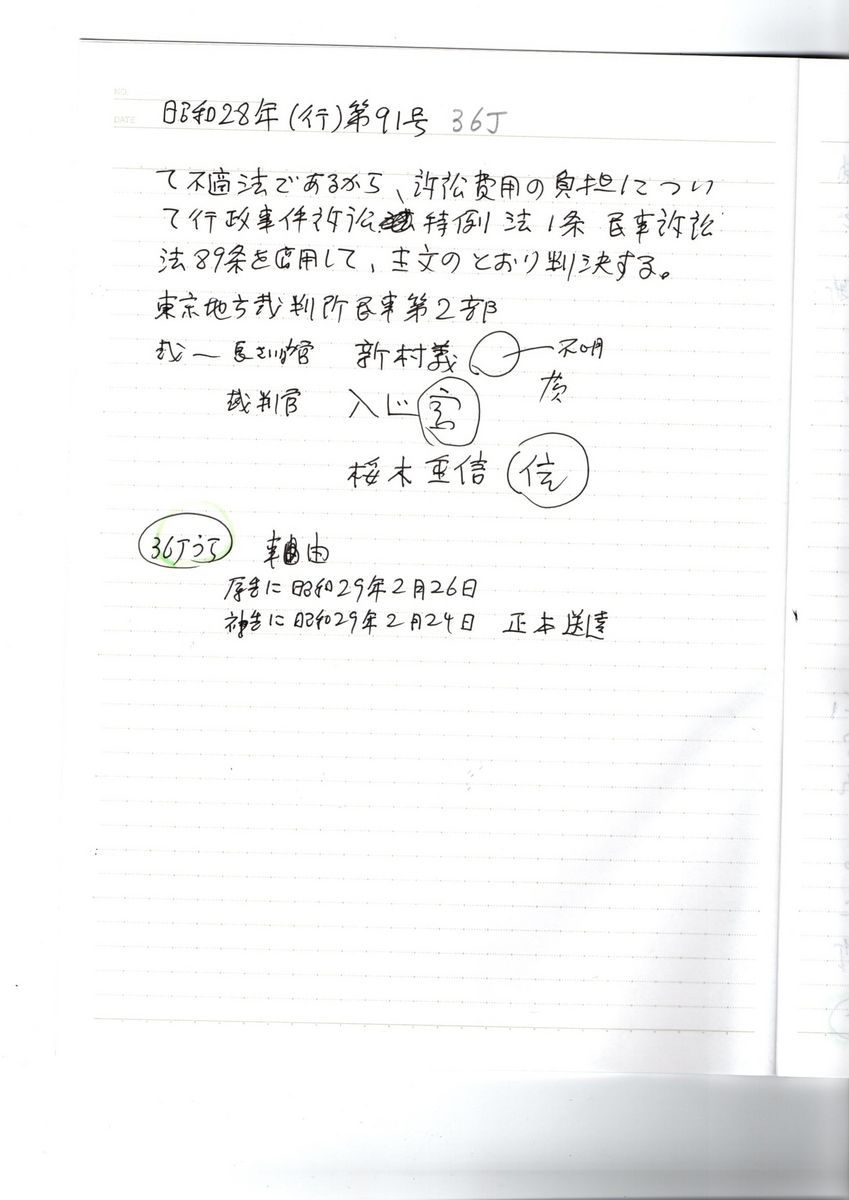 NO.
DATE
昭和28年(行)第91号 36丁
て不適法であるから、訴訟費用の負担につい
て行政事件訴訟特例法1条 民事訴訟
法89条を適用して、主文のとおり判決する。
東京地方裁判所民事第2部
裁 長さい判官 新村義 不明
裁判官 入
桜木 信 信
36丁うら 由
原告に昭和29年2月26日
被告に昭和29年2月24日 正本送達